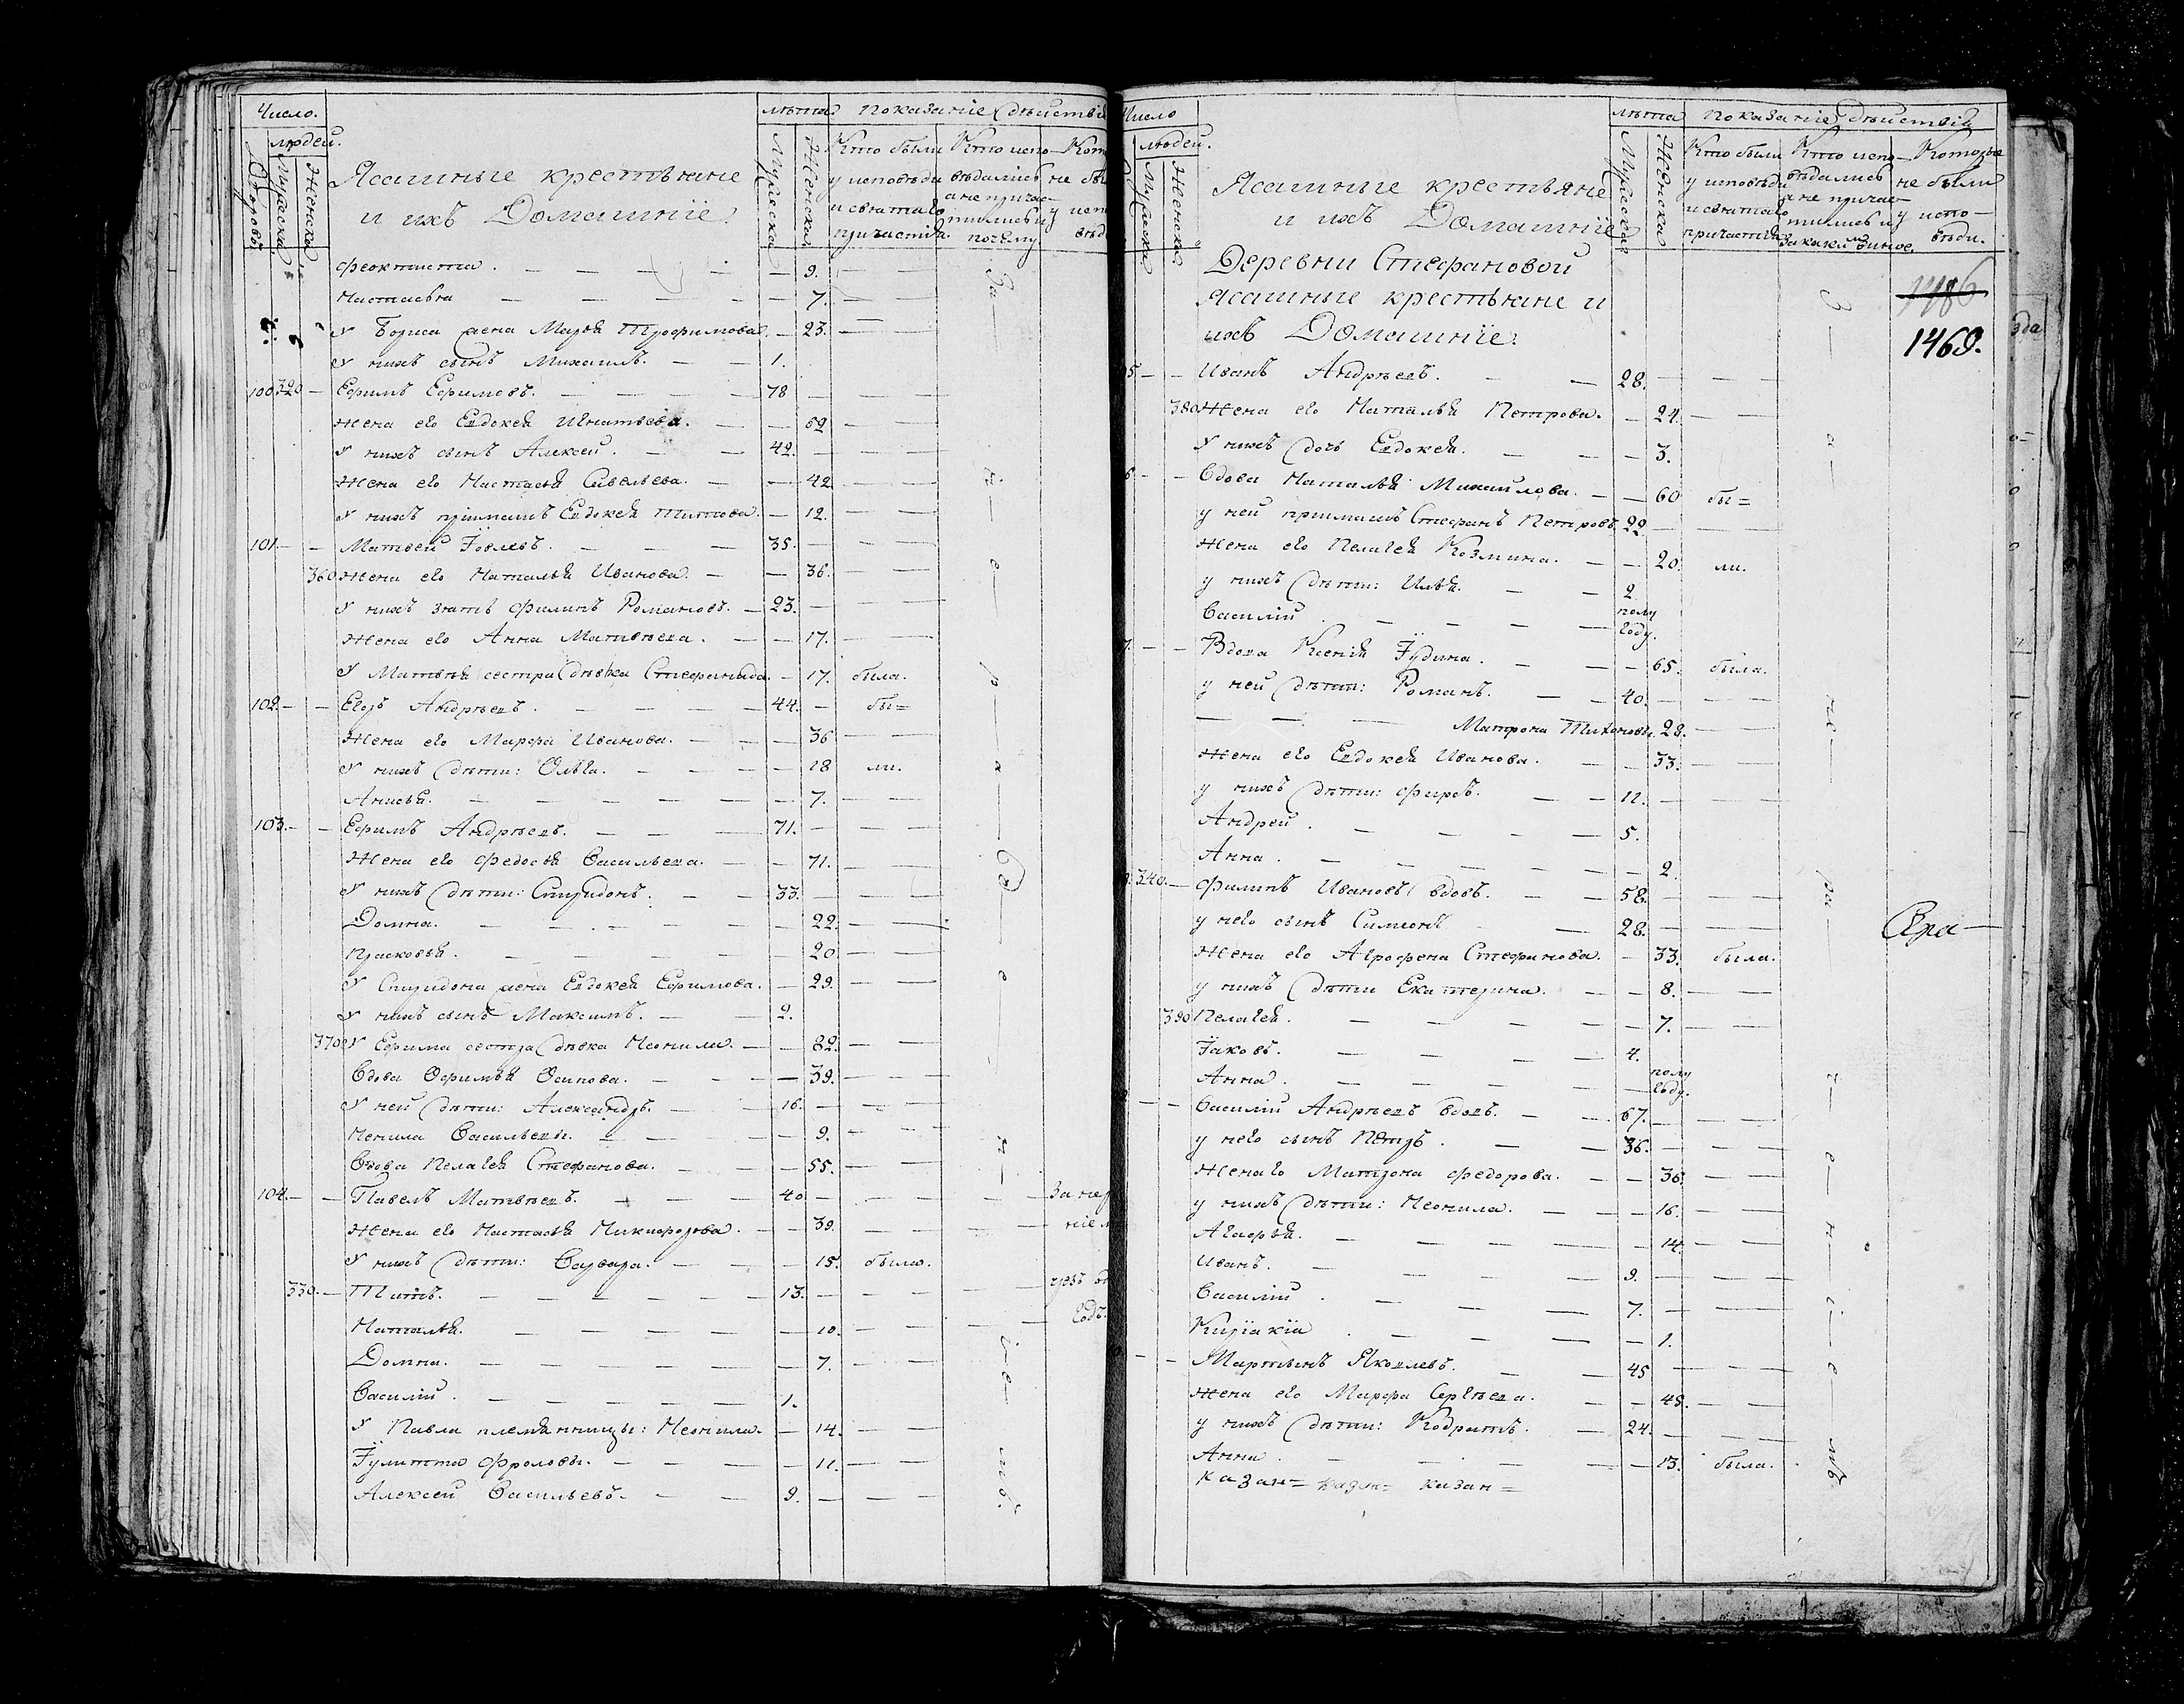 Число.
людей.
Дворовъ
Мужеска
Женска
Ясашные крестьяне
и ихъ Домашніе.
лѣта
Мужеска
Женска
Показаніе дѣйствія
Кто были
у исповѣди
и святаго
причастія.
Кто испо-
вѣдались
а не причас-
тились и
почему
Феоктиста. 9.
Настасья 7.
У Бориса жена Марья Трофимова. 23.
У нихъ сынъ Михаилъ. 1.
100 320 Ефимъ Ефимовъ. 78
Жена его Евдокея Игнатьева. 52
У нихъ сынъ Алексей. 42.
Жена его Настасья Савельева. 42
У нихъ пріимашъ Евдокея Титова. 12.
101. Матвей Іовлевъ. 35.
360 Жена его Наталья Иванова. 36.
У нихъ зять Филипъ Романовъ. 23.
Жена его Анна Матвѣева. 17.
У Матвѣя сестра дѣвка Стефанида. 17. была.
102. Егоръ Андрѣевъ. 44. бы=
Жена его Марфа Иванова. 36
У нихъ дѣти: Ольга. 18 ли.
Анисья. 7.
103. Ефимъ Андрѣевъ. 71.
Жена его Федосья Васильева. 71.
У нихъ дѣти: Спиридонъ. 33.
Домна. 22.
Прасковья. 20.
У Спиридона жена Евдокея Ефимова. 29.
У нихъ сынъ Максимъ. 2.
370 У Ефима сестра дѣвка Неонила. 82.
Вдова Афимья Осипова. 39.
У ней дѣти: Александръ. 16.
Ненила Васильевы. 9.
Вдова Пелагея Стефанова. 55.
104. Павелъ Матвѣевъ. 40
Жена его Настасья Никифорова. 39.
У нихъ дѣти: Варвара. 15. были.
330. Титъ. 13.
Наталья. 10.
Домна. 7.
Василій. 1.
У Павла племянницы: Неонила. 14.
Іулитта Фроловы. 11.
Алексей Васильевъ. 9.
Число
людей.
Мужеска
Женска
Ясашные крестьяне
и ихъ Домашніе
лѣта
Мужеска
Женска
Показаніе дѣйствія
Кто были
у исповѣди
и святаго
причастія
Кто испо-
вѣдались
а не причас-
тились и
Которые
не были
у испо-
вѣди.
Деревни Стефановой
Ясашные крестьяне и
ихъ Домашніе.
1486
1469.
5 Иванъ Андрѣевъ. 28.
380 Жена его Наталья Петрова. 24.
У нихъ дочь Евдокея. 3.
6 Вдова Наталья Михайлова. 60 бы=
у ней пріимашъ Стефанъ Петровъ 22.
Жена его Пелагея Козмина. 20. ли.
у нихъ дѣти: Илья. 2
Василій полу
году.
7. Вдова Ксенія Іудина. 65. была.
у ней дѣти: Романъ. 40.
Матрона Тихонова. 28.
Жена его Евдокея Иванова. 33.
у нихъ дѣти: Фирсъ. 12.
Андрей 5.
Анна. 2.
340. Филипъ Ивановъ вдовъ. 58.
у него сынъ Симеонъ 28.
Жена его Агрофена Стефанова. 33. была.
у нихъ дѣти Екатерина. 8.
390 Пелагея. 7.
Іаковъ. 4.
Анна. полу
году.
Василій Андрѣевъ вдовъ. 67.
у него сынъ Петръ. 36.
Жена го Матрона Федорова. 36.
у нихъ дѣти: Неонила. 16.
Агафья. 14.
Иванъ. 9.
Василій 7.
Киріакіа 1.
Мартынъ Яковлевъ. 45
Жена его Марфа Сергѣева. 45.
у нихъ дѣти: Кодратъ. 24.
Анна. 13. была.
казан= казан= казан=